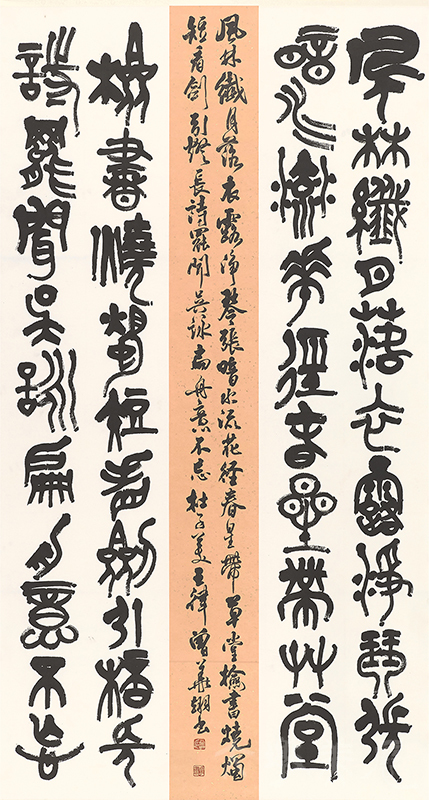 風林纖月落衣露淨琴張
暗水流花徑春星帶草堂
風林纖月落衣露淨琴張暗水流花徑春星帶草堂檢書燒燭
短看劍引桮長詩罷聞吳詠扁舟意不忘杜子美五律曾書
檢書燒燭短看劍引桮長
詩罷聞吳詠扁舟意不忘